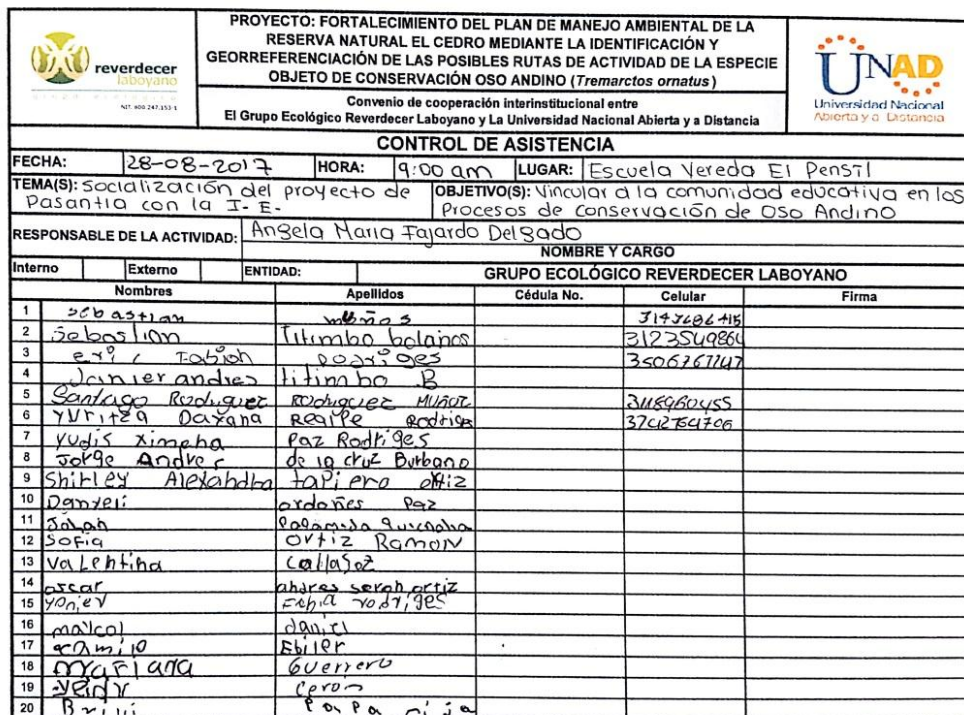 reverdecer
laboyano
NIT. 800.247.153-1
PROYECTO: FORTALECIMIENTO DEL PLAN DE MANEJO AMBIENTAL DE LA
RESERVA NATURAL EL CEDRO MEDIANTE LA IDENTIFICACIÓN Y
GEORREFERENCIACIÓN DE LAS POSIBLES RUTAS DE ACTIVIDAD DE LA ESPECIE
OBJETO DE CONSERVACIÓN OSO ANDINO (Tremarctos ornatus)
Convenio de cooperación interinstitucional entre
El Grupo Ecológico Reverdecer Laboyano y La Universidad Nacional Abierta y a Distancia
UNAD
Universidad Nacional
Abierta y a Distancia
CONTROL DE ASISTENCIA
FECHA: 28-08-2017 HORA: 9:00 am LUGAR: Escuela Vereda El Pensil
TEMA(S): Socialización del proyecto de
Pasantia con la I.E.
OBJETIVO(S): Vincular a la comunidad educativa en los
Procesos de conservación de Oso Andino
RESPONSABLE DE LA ACTIVIDAD: Angela Maria Fajardo Delgado
NOMBRE Y CARGO
Interno Externo ENTIDAD: GRUPO ECOLÓGICO REVERDECER LABOYANO
Nombres Apellidos Cédula No. Celular Firma
1 sebastian muños
2 Sebastian Titimbo bolaños 3123549864
3 eric Fabian rodriges 3506767747
4 Janier andres titimbo B
5 Santiago Rodriguez Rodriguez Muñoz 3118960455
6 Yuritza Dayana Rodrige
7 yudis ximena Paz Rodriges
8 Jorge Andres de la cruz Burbano
9 Shirley Alexandra tapiero ortiz
10 Danyeli ordoñes Paz
11
12 Sofia Ortiz Ramon
13 Valentina
14 oscar andres ortiz
15 yonier rodriges
16 maycol daniel
17 camilo
18 mariana Guerrero
19 yeidy Ceron
20